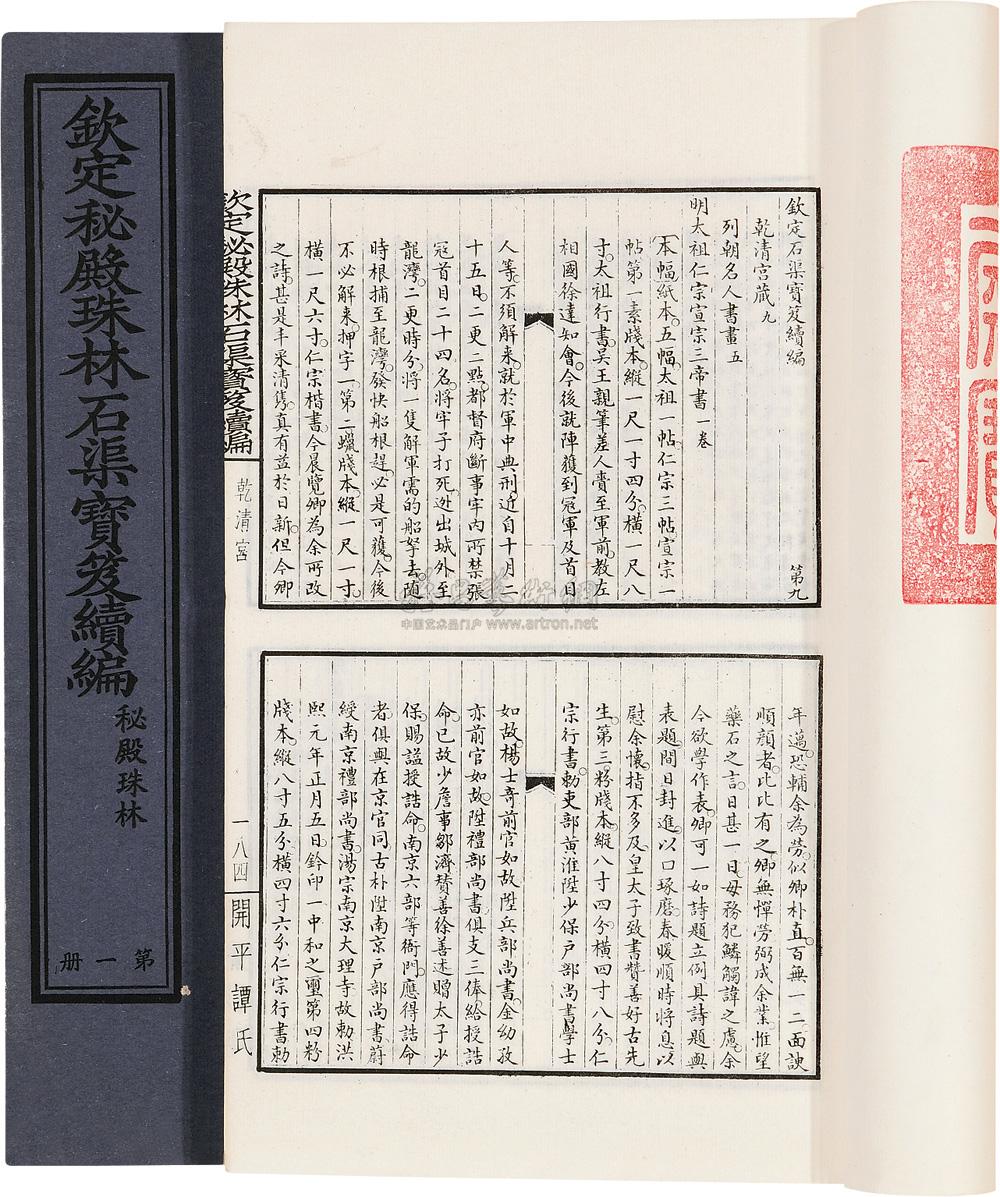 欽定秘殿珠林石渠寶笈續編
秘殿珠林
第一册
欽定秘殿珠林石渠寶笈續編
乾清宮
一八四
開平譚氏
欽定石渠寶笈續編
第九
乾清宮藏九
列朝名人書畫五
明太祖仁宗宣宗三帝書一卷
本幅紙本。五幅。太祖一帖。仁宗三帖。宣宗一
帖。第一素牋本。縱一尺一寸四分。橫一尺八
寸。太祖行書。吳王親筆差人賫至軍前。教左
相國徐達知會。今後就陣獲到冦軍及首目
人等。不須解来。就於軍中典刑。近自十月二
十五日。二更二點。都督府斷事牢內所禁張
冦首目二十四名。將牢子打死。迯出城外。至
龍灣。二更時分。將一隻解軍需的船拏去。隨
時根捕至龍灣。發快船根趕。必是可獲。今後
不必解来。押字一。第二蠟牋本。縱一尺一寸。
橫一尺六寸。仁宗楷書。今晨覽卿為余所改
之詩。甚是丰采清雋。真有益於日新。但今卿
年邁。恐輔余為勞。似卿朴直。百無一二。面諛
順顏者。比比有之。卿無憚勞弼成余業。惟望
藥石之言。日甚一日。毋務犯鱗觸諱之慮。余
今欲學作表。卿可一如詩題立例。具詩題與
表題間日封進。以口琢磨。春暖順時將息。以
慰余懷。指不多及。皇太子致書贊善好古先
生。第三粉牋本。縱八寸四分。橫四寸八分。仁
宗行書。勅吏部黃淮陞少保戶部尚書學士
如故。楊士奇前官如故。陞兵部尚書。金幼孜
亦前官如故。陞禮部尚書。俱支三俸。給授誥
命。已故少詹事鄒濟贊善徐善述贈太子少
保。賜諡授誥命。南京六部等衙門。應得誥命
者。俱與在京官同。古朴陞南京戶部尚書。蔚
綬南京禮部尚書。湯宗南京大理寺。故勅。洪
熙元年正月五日。鈐印一。中和之璽。第四粉
牋本。縱八寸五分。橫四寸六分。仁宗行書。勅
中国艺术品门户 www.artron.net